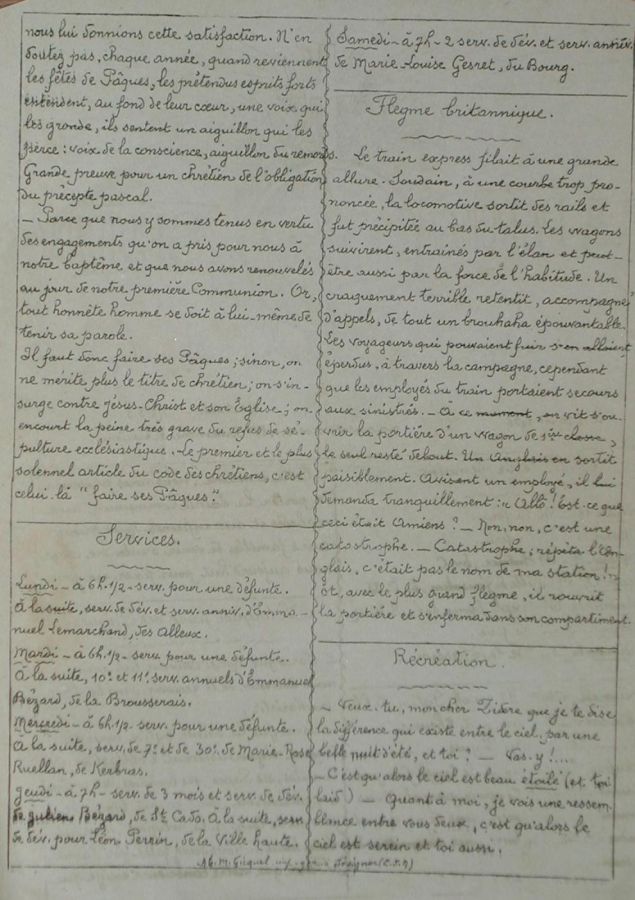 nous lui donnions cette satisfaction. N'en
doutez pas, chaque année, quand reviennent
les fêtes de Pâques, les prétendus esprits forts
entendent, au fond de leur cœur, une voix qui
les gronde, ils sentent un aiguillon qui les
perce : voix de la conscience, aiguillon du remords.
Grande preuve pour un chrétien de l'obligation
du précepte pascal.
— Parce que nous y sommes tenus en vertu
des engagements qu'on a pris pour nous à
notre baptême et que nous avons renouvelés
au jour de notre première Communion. Or,
tout honnête homme se doit à lui-même de
tenir sa parole.
Il faut donc faire ses Pâques ; sinon, on
ne mérite plus le titre de chrétien ; on s'in-
surge contre Jésus-Christ et son Église ; on
encourt la peine très grave du refus de sé-
pulture ecclésiastique. Le premier et le plus
solennel article du code des chrétiens, c'est
celui-là "faire ses Pâques".
Services.
Lundi - à 6h.1/2 - serv. pour une défunte.
à la suite, serv. de dév. et serv. anniv. d'Emma-
nuel Lemarchand, des Alleux.
Mardi - à 6h.1/2 - serv. pour une défunte.
à la suite, 10e et 11e serv. annuels d'Emmanuel
Bézard, de la Brousserais.
Mercredi - à 6h.1/2 - serv. pour une défunte.
à la suite, serv. de 7e et de 30e de Marie-Rose
Ruellan, de Kerbras.
Jeudi - à 7h - serv. de 3 mois et serv. de dév.
de Julien Bézard, de St Cado. à la suite, serv.
de dév. pour Léon Perrin, de la Ville haute.
Samedi - à 7h - 2 serv. de dév. et serv. anniv.
de Marie Louise Gesret, du Bourg.
Flegme britannique.
Le train express filait à une grande
allure. Soudain, à une courbe trop pro-
noncée, la locomotive sortit des rails et
fut précipitée au bas du talus. Les wagons
suivirent, entraînés par l'élan et peut-
être aussi par la force de l'habitude. Un
craquement terrible retentit, accompagné
d'appels, de tout un brouhaha épouvantable.
Les voyageurs qui pouvaient fuir s'en allaient
éperdus, à travers la campagne, cependant
que les employés du train portaient secours
aux sinistrés. - À ce moment, on vit s'ou-
vrir la portière d'un wagon de 1ère classe,
le seul resté debout. Un Anglais en sortit
paisiblement. Avisant un employé, il lui
demanda tranquillement : "Allô ! Est-ce que
ceci était Amiens ? - Non, non, c'est une
catastrophe. - Catastrophe, répéta l'An-
glais, c'était pas le nom de ma station !"
Et, avec le plus grand flegme, il rouvrit
la portière et s'enferma dans son compartiment.
Récréation.
- Veux-tu, mon cher Zidore que je te dise
la différence qui existe entre le ciel, par une
belle nuit d'été, et toi ? - Vas-y !....
- C'est qu'alors le ciel est beau étoilé (et toi
laid) - Quant à moi, je vois une ressem-
blance entre vous deux, c'est qu'alors le
ciel est serein et toi aussi.